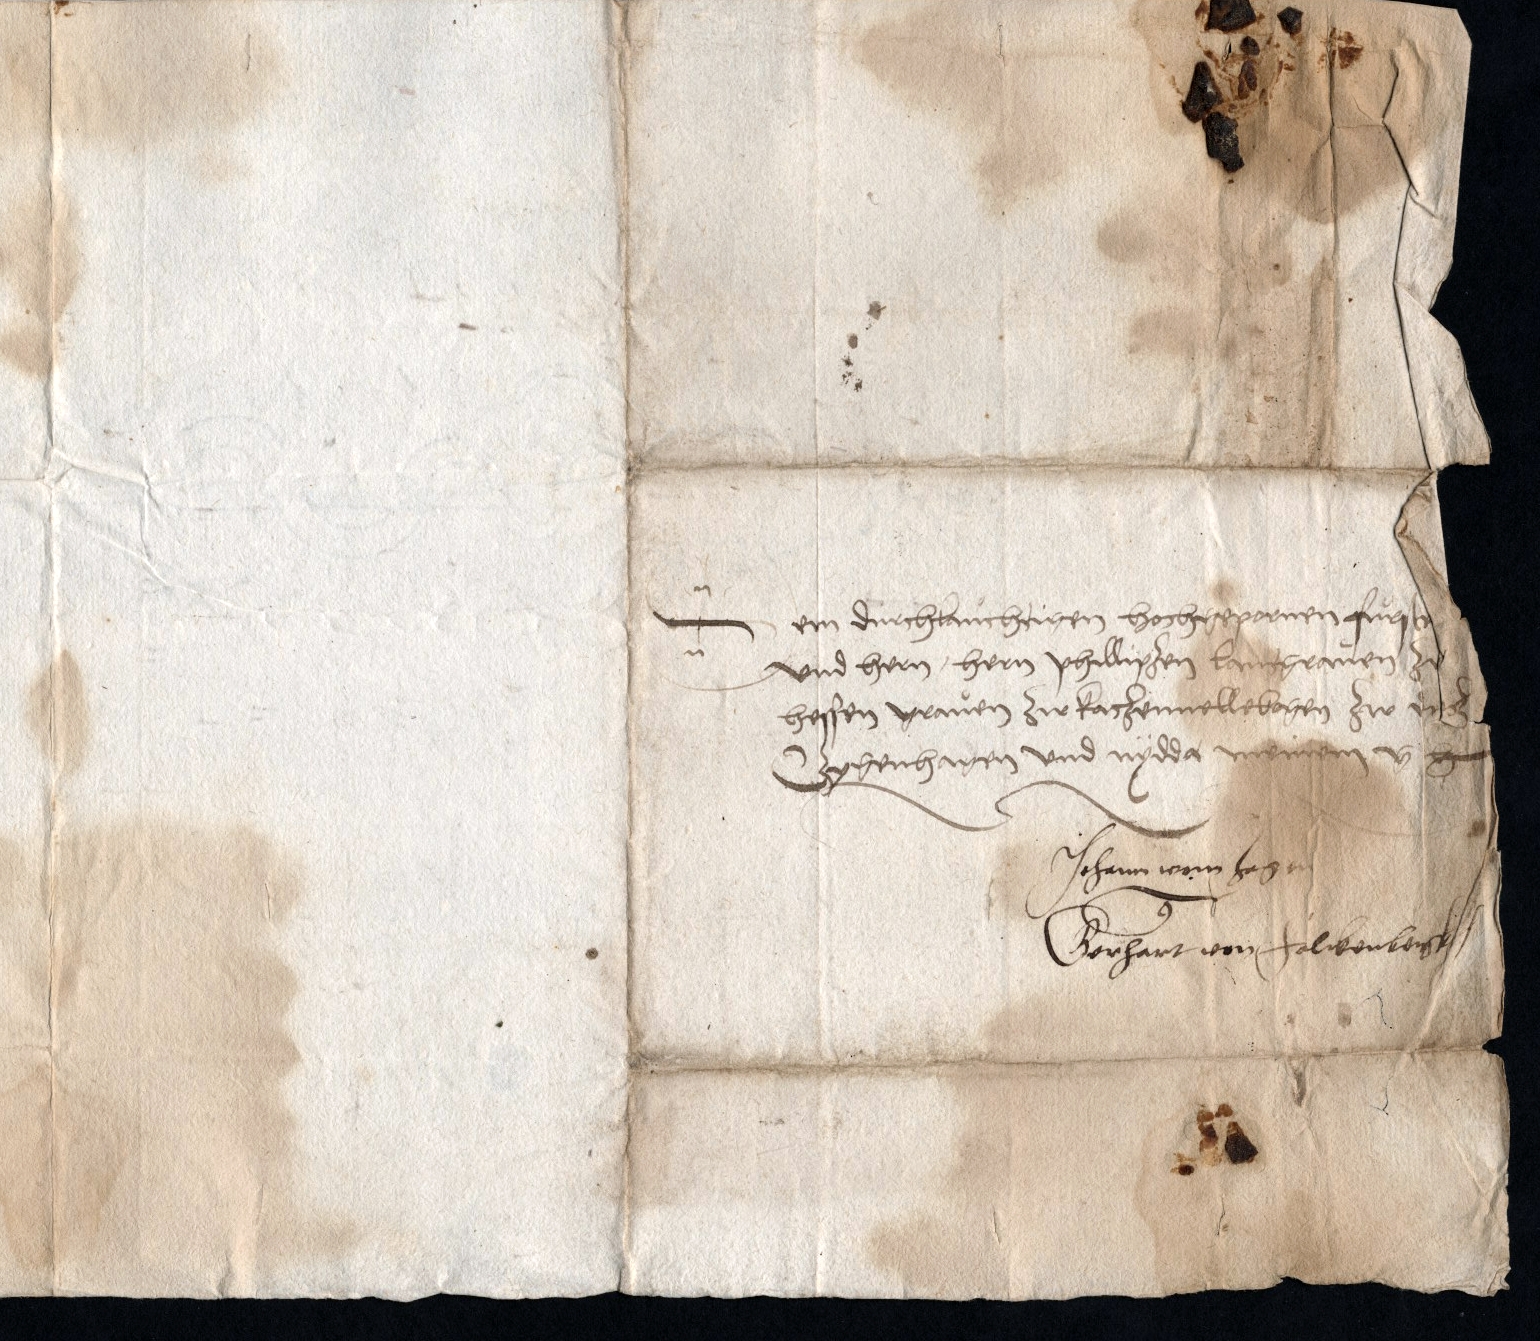 Dem durchlauchtigen hochgepornen furste
und hern, hern phillipßen lantgraven zu
hessen graven zu katzennellebogen zu
Zygenhagen und nydda meinem g
Johann vom hagen
Gerhart von Falckenbergk